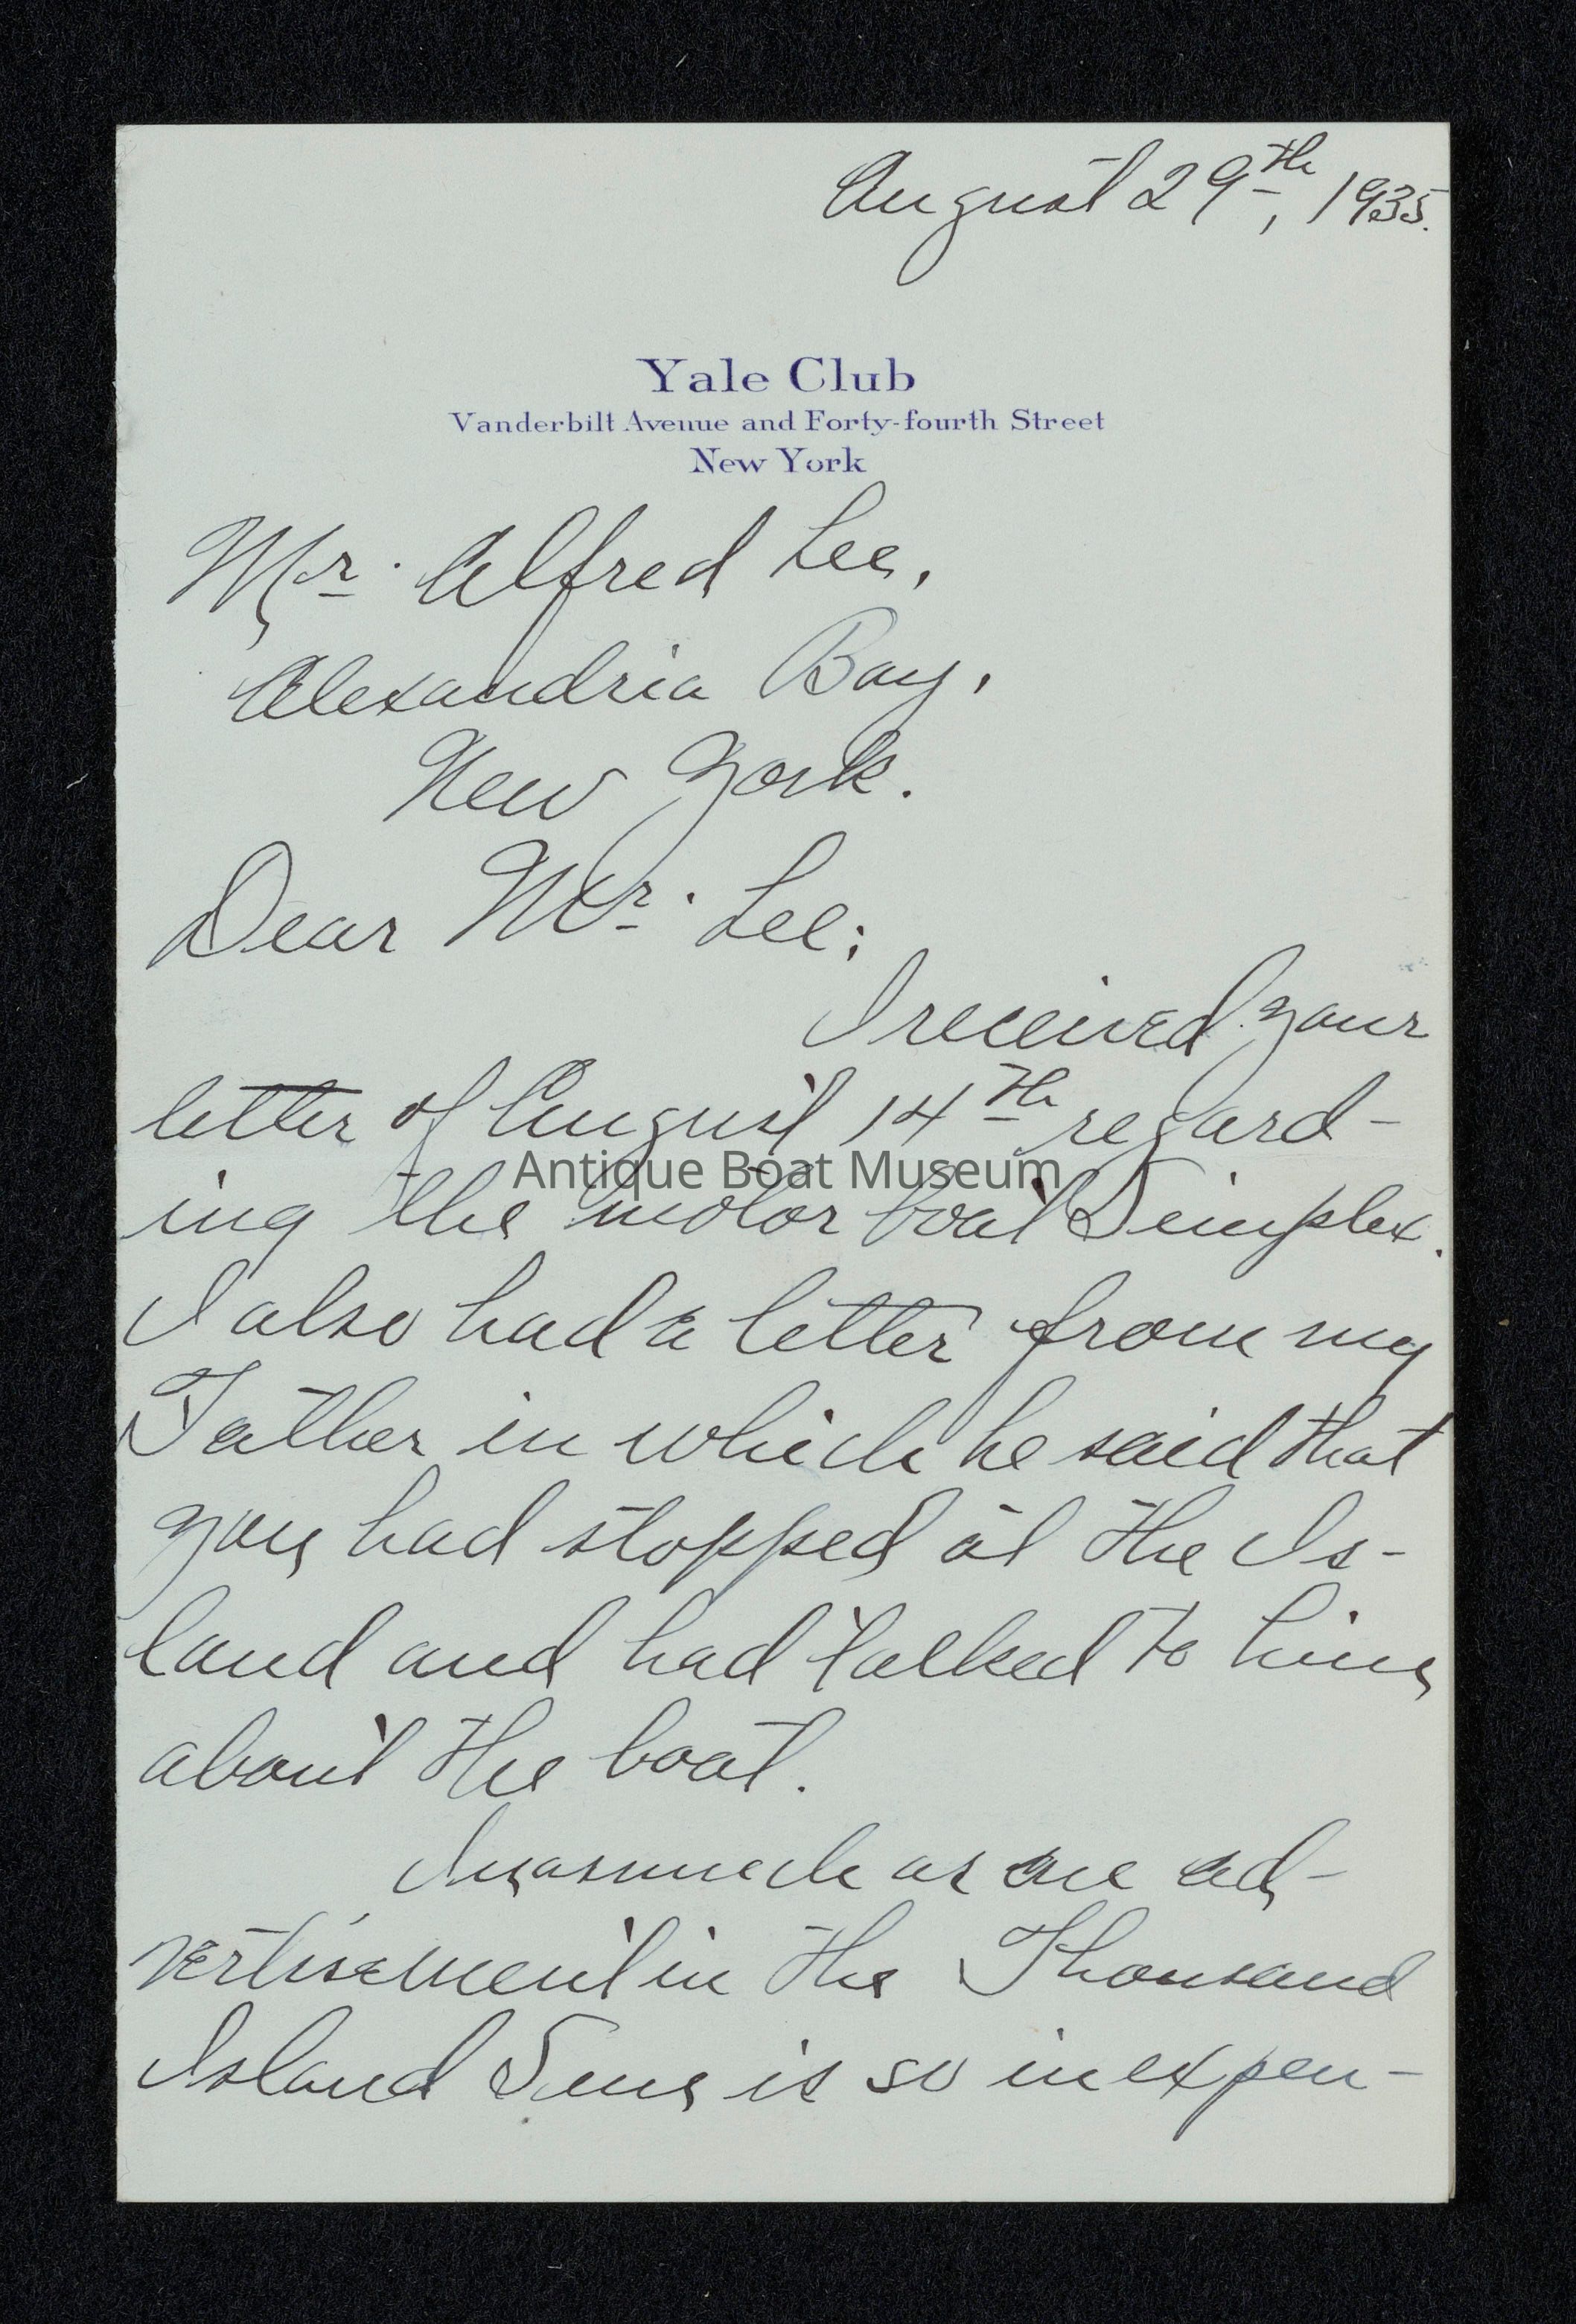 August 29th, 1935.
Yale Club
Vanderbilt Avenue and Forty-fourth Street
New York
Mr. Alfred Lee,
Alexandria Bay,
New York.
Dear Mr. Lee:
I received your
letter of August 14th regard-
Antique Boat Museum
ing the motor boat Simplex.
I also had a letter from my
Father in which he said that
you had stopped at the Is-
land and had talked to him
about the boat.
Inasmuch as one ad-
vertisement in the Thousand
Island Sun is so inexpen-